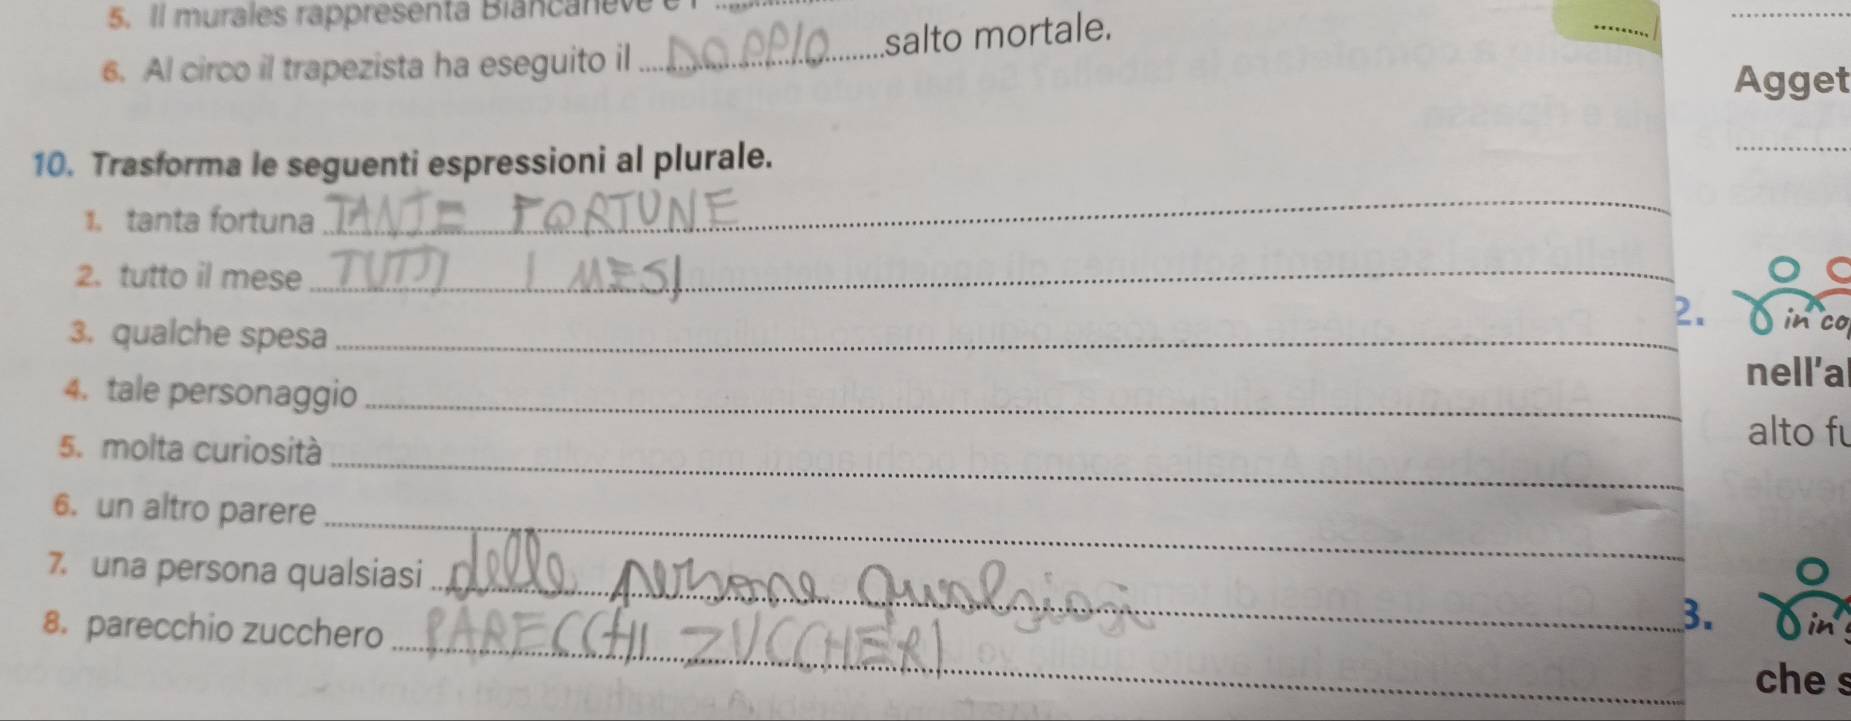 5. Il murales rappresenta Biancaneve e i
6. Al circo il trapezista ha eseguito il DOPPIO salto mortale.
10. Trasforma le seguenti espressioni al plurale.
1. tanta fortuna TANTE FORTUNE
2. tutto il mese TUTTI I MESI
3. qualche spesa
4. tale personaggio
5. molta curiosità
6. un altro parere
7. una persona qualsiasi delle persone qualsiasi
8. parecchio zucchero PARECCHI ZUCCHERI
Agget
2. in co
nell'al
alto fu
3. in
che s